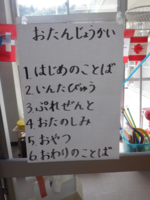 おたんじょうかい
1.はじめのことば
2.いんたびゅう
3.ぷれぜんと
4.おたのしみ
5.おやつ
6.おわりのことば